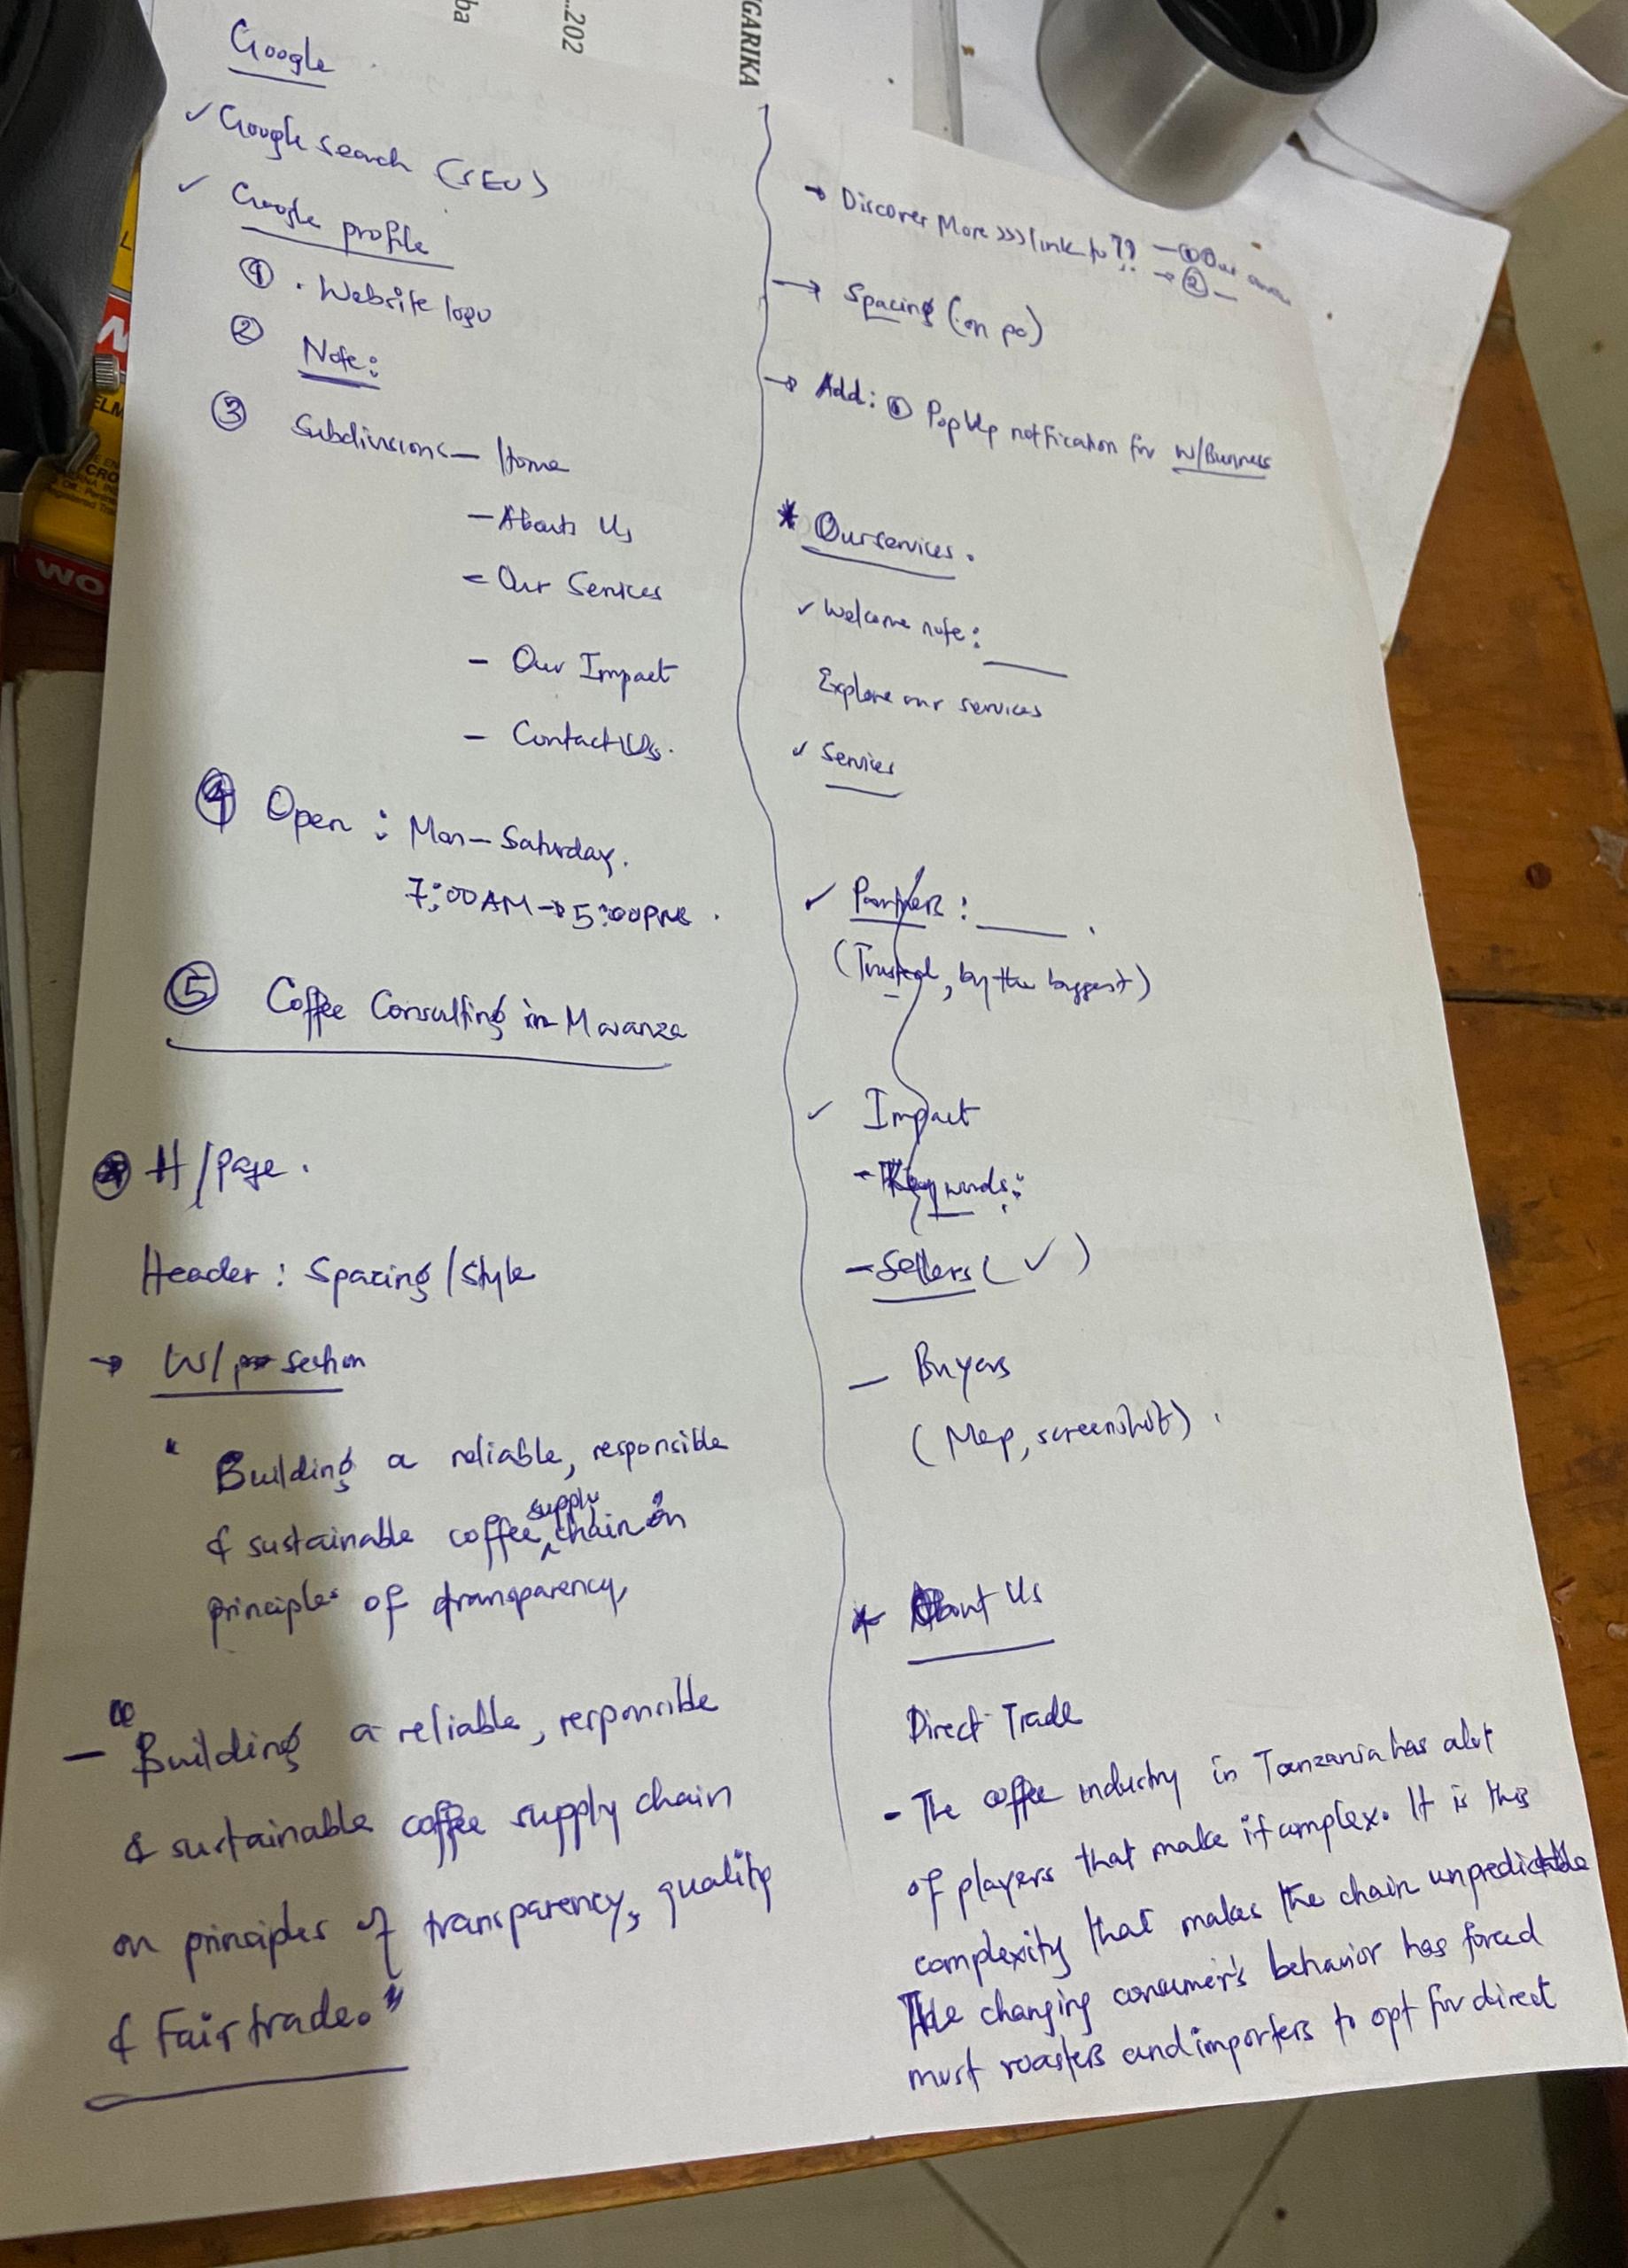 Google
✓ Google search (SEO)
✓ Google profile
① . Website logo
② Note:
③ Subdivisions — Home
— Abouts Us
= Our Services
- Our Impact
- Contact Us.
④ Open : Mon – Saturday.
7:00AM → 5:00PM .
⑤ Coffee Consulting in Mwanza
H/Page .
Header : Spacing / Style
→ W/ section
" Building a reliable, responsible
& sustainable coffee supply chain on
principles of transparency,
— "Building a reliable, responsible
& sustainable coffee supply chain
on principles of transparency, quality
& Fair trade."
→ Discover More >>> link to ?? — ① Our
→ ② —
→ Spacing (on pc)
→ Add: ① PopUp notfication for W/Business
* Our services .
✓ Welcome note : ____
Explore our services
✓ Services
✓ Partners : ____ .
(Trusted, by the biggest)
✓ Impact
- Keywords:
- Sellers ( ✓ )
— Buyers
( Map, screenshot) .
* About Us
Direct Trade
- The coffee industry in Tanzania has alot
of players that make it complex. It is this
complexity that makes the chain unpredictable
The changing consumer's behavior has forced
most roasters and importers to opt for direct
GARIKA
...202
ba
CRO
WO